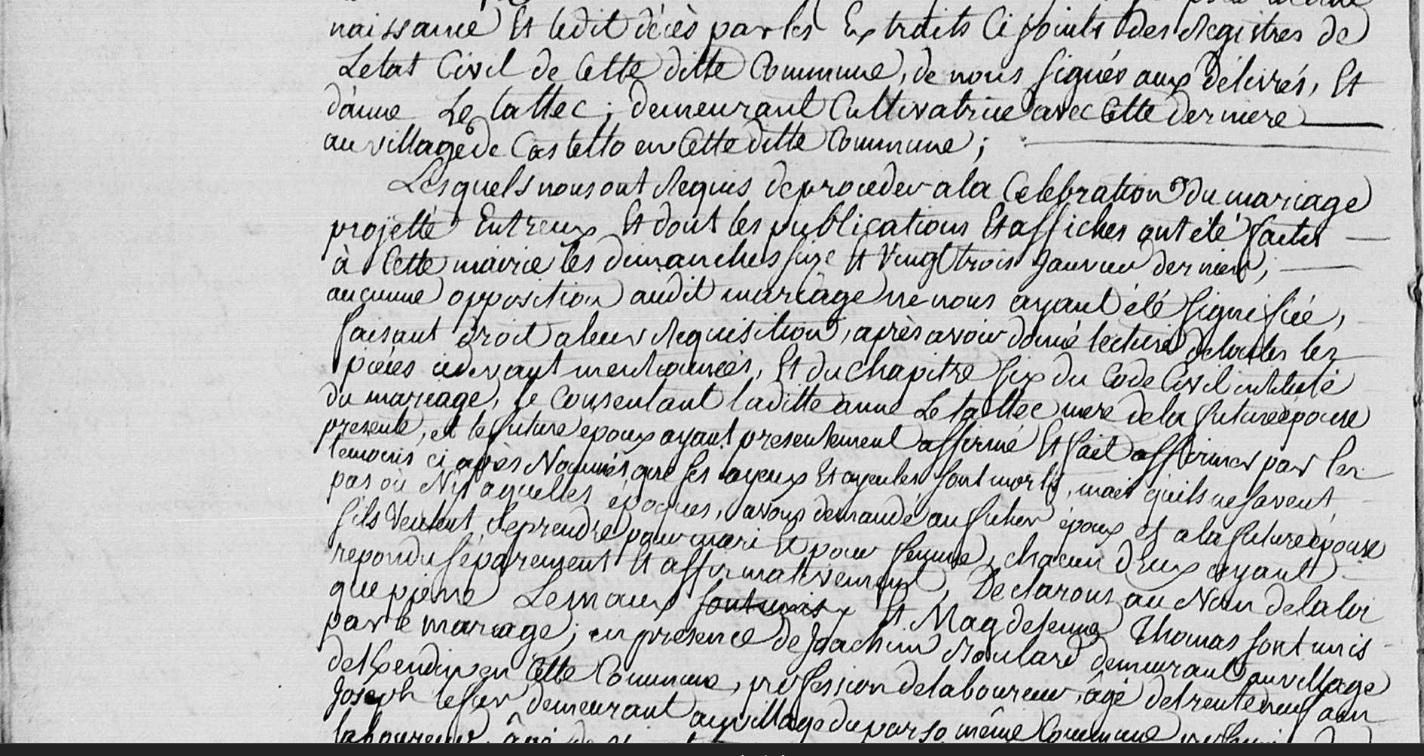 naissance Et ledit décès par les Extraits Ci joints des Registres de
Letat Civil de Cette ditte Commune, de nous signés aux délivrés, Et
d'anne Le tallec; demeurant Cultivatrice avec Cette derniere
au village de Castello en Cette ditte Commune;
Lesquels nous ont Requis de proceder a la Celebration du mariage
projetté Entreux Et dont les publications Et affiches ont été faites
à Cette mairie les dimanches seize Et Vingt trois Janvier dernier,
aucunne opposition audit mariage ne nous ayant été signifiée,
faisant droit a leur Requisition, après avoir donné lecture de toutes les
pièces cidevant mentionnées, Et du chapitre six du Code Civil intitulé
du mariage, le Consentant laditte anne Le tallec mere de la future épouse
presente, et le future epoux ayant presentement affirmé Et fait affirmer par les
temoins ci après Nommés que ses ayeux Et ayeules sont morts, mais quils ne savent,
pas où Ni a quelles époques, avons demandé au futur époux et a la future épouse
sils veulent se prendre pour mari Et pour femme, chacun d'eux ayant
repondu séparement Et affirmativement, Declarons au Nom de la loi
que pierre Lemaux sont unis Et Magdelenne Thomas sont unis
par le mariage; en présence de Joachim Roulard demeurant au village
de en Cette Commune, profession de laboureur, âgé de trente neuf ans
Joseph demeurant au village du même Commune
laboureur, âgé de